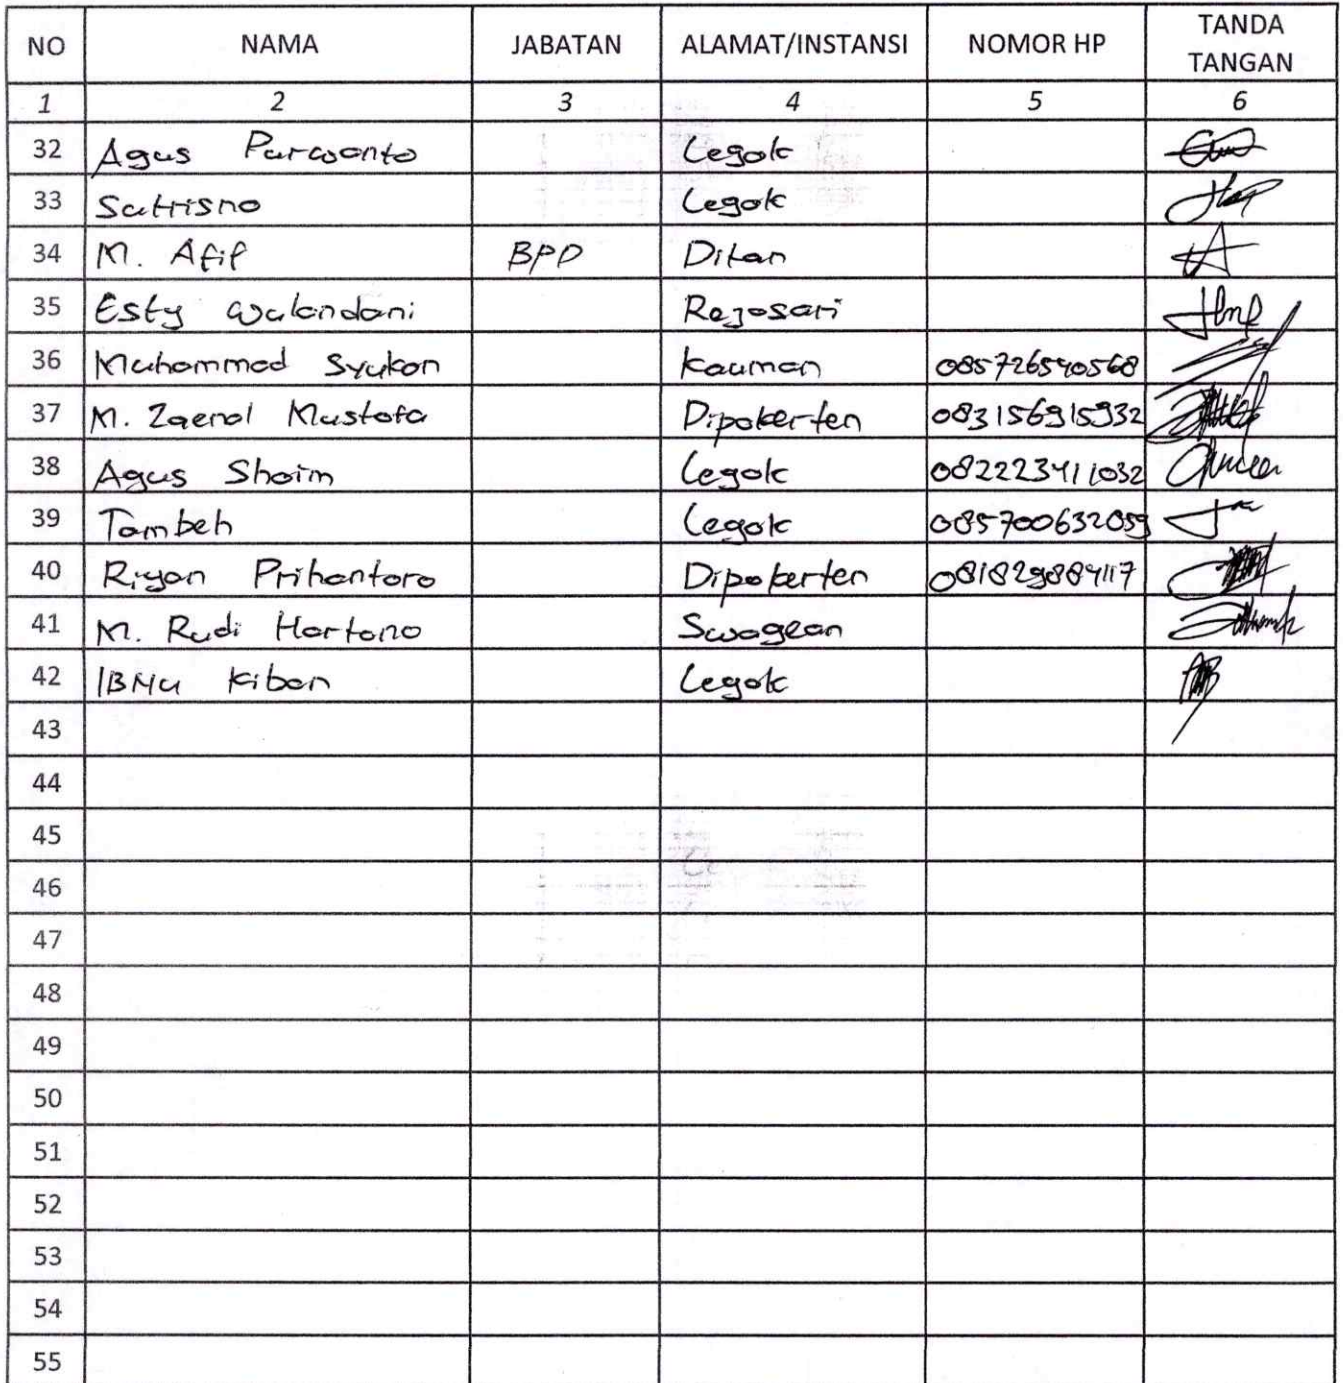 NO NAMA JABATAN ALAMAT/INSTANSI NOMOR HP TANDA TANGAN
1 2 3 4 5 6
32 Agus Purwanto Legok
33 Sutrisno Legok
34 M. Afif BPD Ditan
35 Esty Wulandani Rejosari
36 Muhammad Syukon Kauman 085726540568
37 M. Zaenal Mustofa Dipokerten 083156915932
38 Agus Shoim Legok 082223411032
39 Tambeh Legok 085700632859
40 Riyan Prihantoro Dipokerten 081829884117
41 M. Rudi Hartono Swagean
42 IBNU Kiban Legok
43
44
45
46
47
48
49
50
51
52
53
54
55